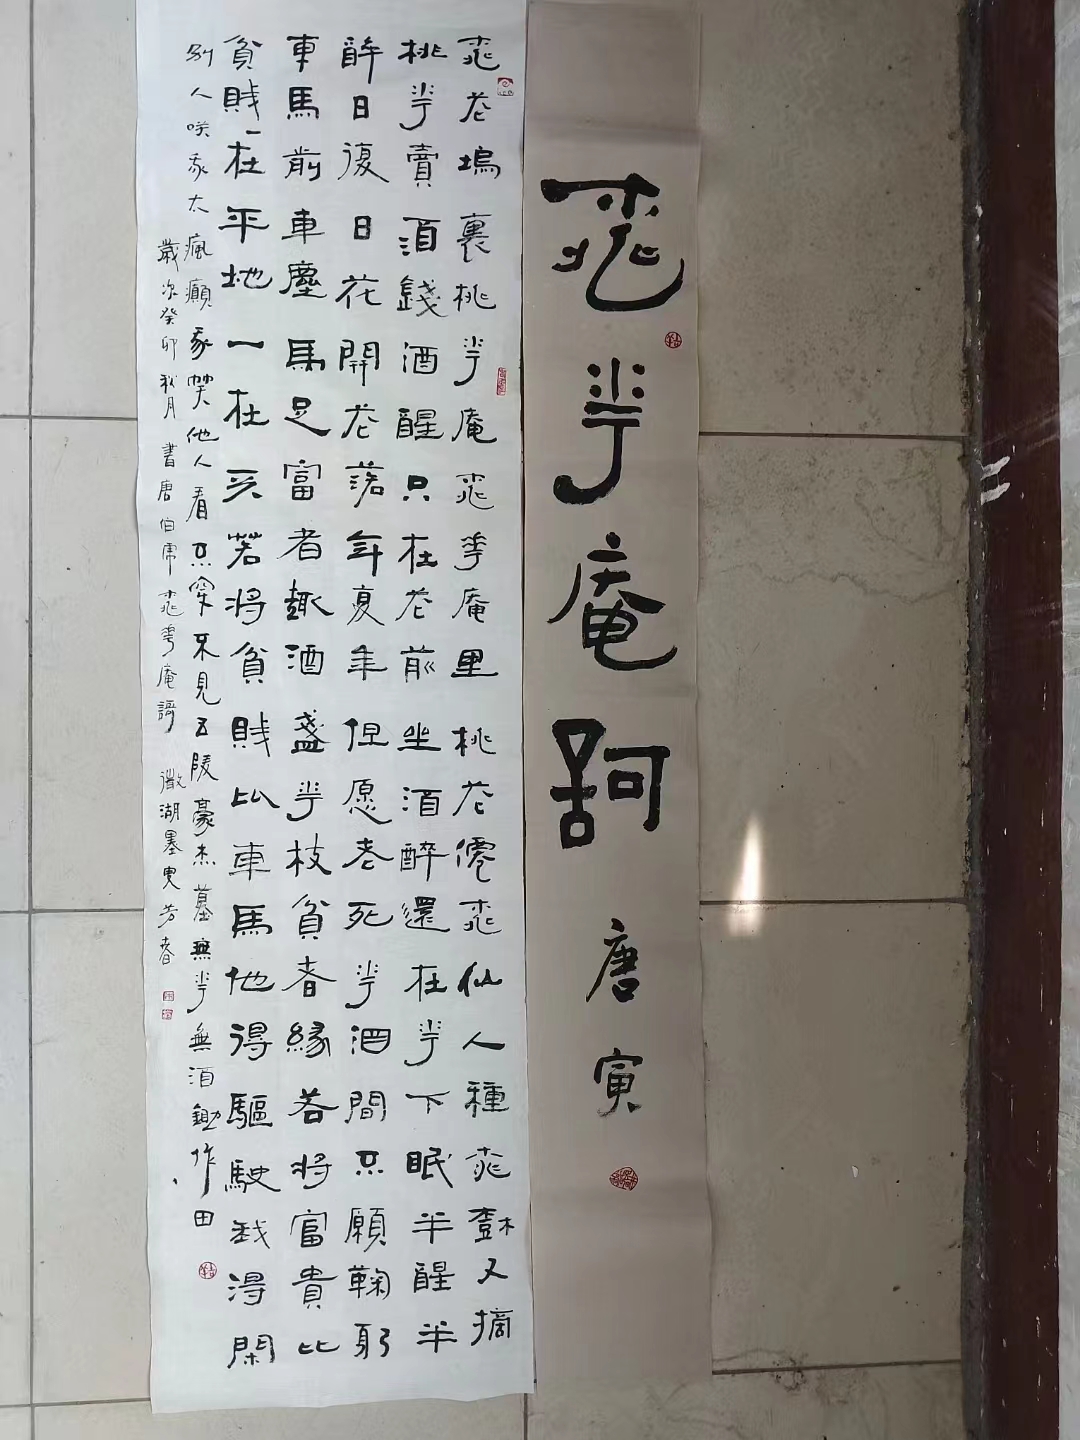 桃華庵謌
唐寅
桃花塢裏桃華庵桃華庵里桃花僊桃仙人種桃樹又摘
桃華賣酒錢酒醒只在花前坐酒醉還在華下眠半醒半
醉日復日花開花落年復年但愿老死華酒間不願鞠躬
車馬前車塵馬足富者趣酒盞華枝貧者緣若將富貴比
貧賤一在平地一在天若將貧賤比車馬他得驅馳我得閑
别人咲我太瘋癲我笑他人看不穿不見五陵豪杰墓無華無酒鋤作田
歲次癸卯秋月書唐伯虎桃華庵謌 微湖墨叟芳春